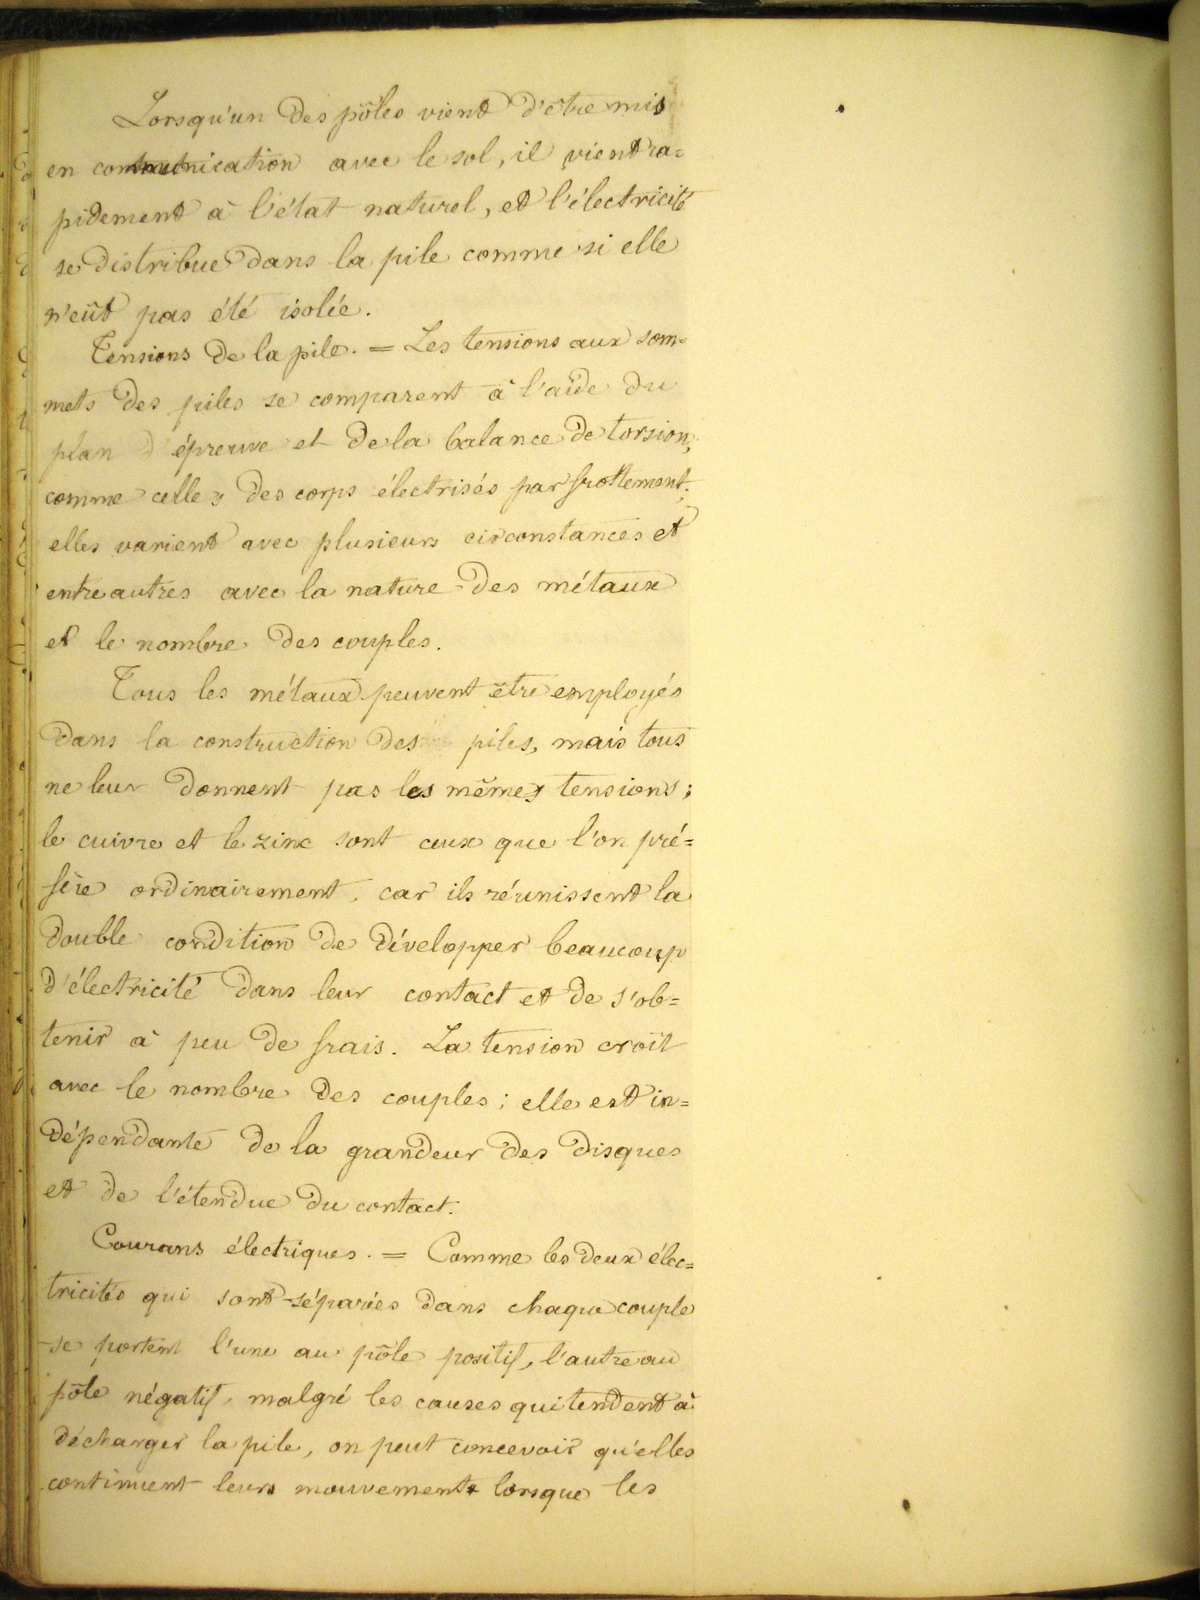 Lorsqu'un des pôles vient d'être mis
en communication avec le sol, il vient ra=
pidement à l'état naturel, et l'électricité
se distribue dans la pile comme si elle
n'eût pas été isolée.
Tensions de la pile. = Les tensions aux som=
mets des piles se comparent à l'aide du
plan d'épreuve et de la balance de torsion,
comme celles des corps électrisés par frottement;
elles varient avec plusieurs circonstances et
entre autres avec la nature des métaux
et le nombre des couples.
Tous les métaux peuvent être employés
dans la construction des piles, mais tous
ne leur donnent pas les mêmes tensions;
le cuivre et le zinc sont ceux que l'on pré=
fère ordinairement, car ils réunissent la
double condition de développer beaucoup
d'électricité dans leur contact et de s'ob=
tenir à peu de frais. La tension croît
avec le nombre des couples; elle est in=
dépendante de la grandeur des disques
et de l'étendue du contact.
Courans électriques. = Comme les deux élec=
tricités qui sont séparées dans chaque couple
se portent l'une au pôle positif, l'autre au
pôle négatif, malgré les causes qui tendent à
décharger la pile, on peut concevoir qu'elles
continuent leurs mouvements lorsque les